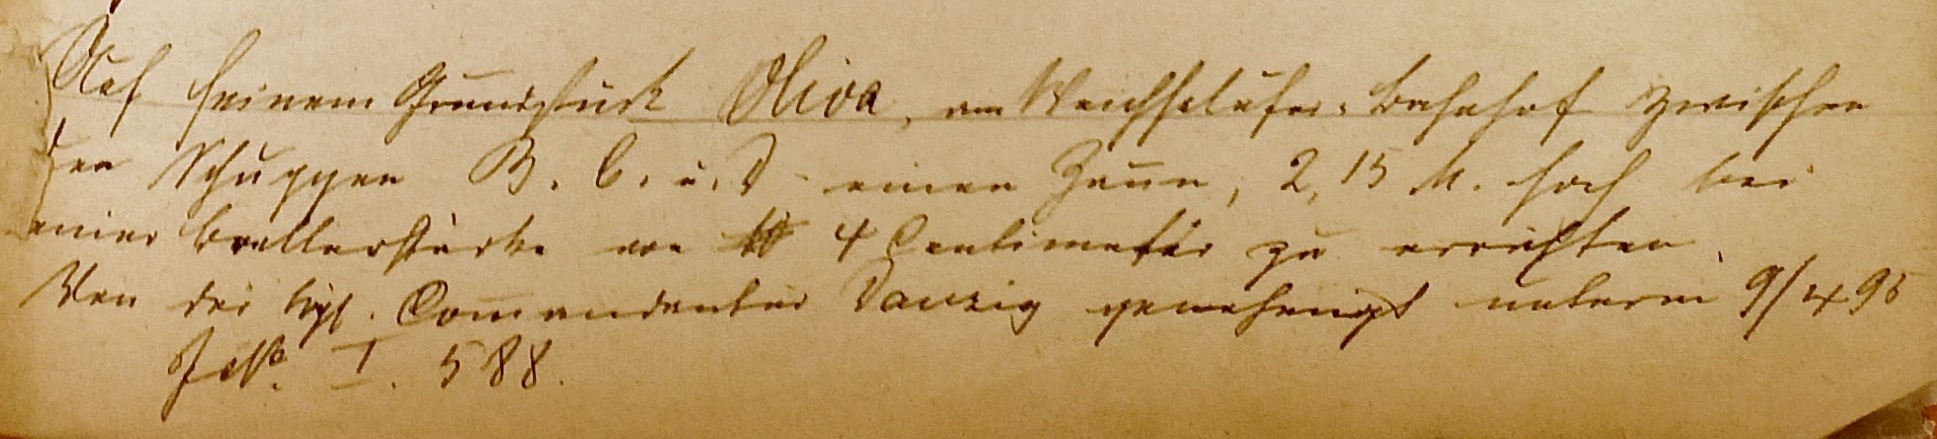 Auf seinem Grundstück Oliva, am Weichselufer-Bahnhof zwischen
den Schuppen B. C. u. D einen Zaun, 2,15 M. hoch bei
einer Bretterstärke von 4 Centimeter zu errichten.
Von der Kgl. Commandantur Danzig genehmigt unterm 9/4 95
J. №. I. 588.